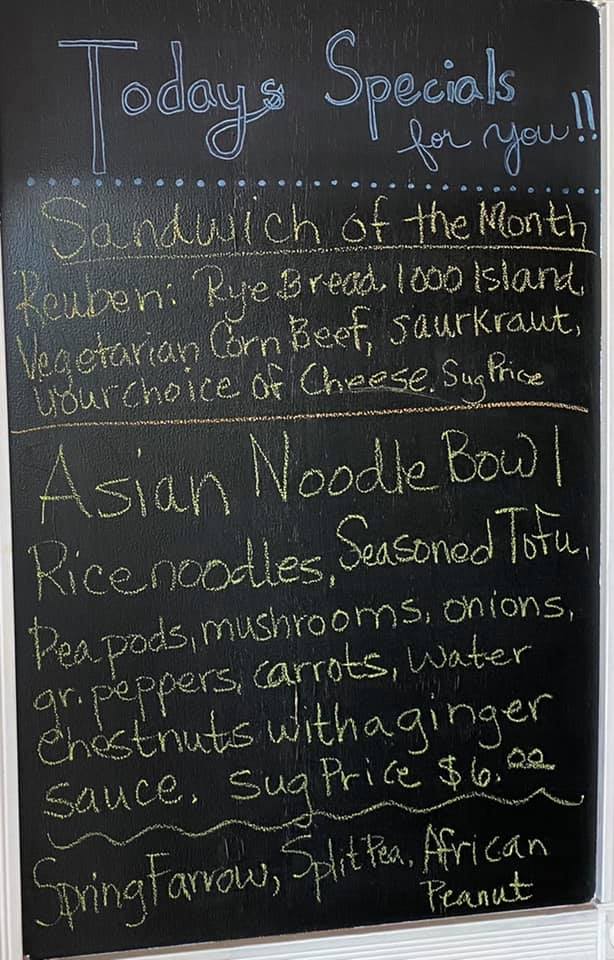 Todays Specials
for you!!
Sandwich of the Month
Reuben: Rye Bread, 1000 Island,
Vegetarian Corn Beef, saurkraut,
your choice of Cheese. Sug Price
Asian Noodle Bowl
Rice noodles, Seasoned Tofu,
Pea pods, mushrooms, onions,
gr. peppers, carrots, water
chestnuts with a ginger
sauce. Sug Price $6.00
Spring Farrow, Split Pea, African
Peanut